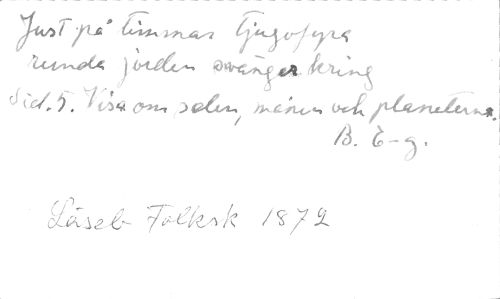 Just på timmar tjugofyra
runda jorden svänger kring
Sid. 5. Visa om solen, månen och planeterna.
B. E-g.
Läseb Folksk 1872